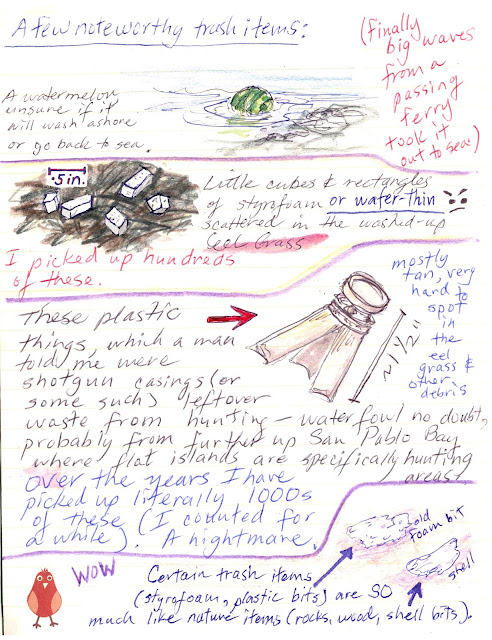 A few noteworthy trash items:
(Finally
big waves
from a
passing
ferry
took it
out to sea.)
A watermelon
unsure if it
will wash ashore
or go back to sea.
.5 in.
Little cubes & rectangles
of styrofoam or water-thin
scattered in the washed-up
eel grass
I picked up hundreds
of these.
mostly
tan, very
hard to
spot
in
the
eel
grass &
other
debris
~1½"
These plastic
things, which a man
told me were
shotgun casings (or
some such) leftover
waste from hunting — water fowl no doubt,
probably from further up San Pablo Bay
where flat islands are specifically hunting
areas!
Over the years I have
picked up literally 1000s
of these (I counted for
a while). A nightmare.
old
foam bit
shell
WOW
Certain trash items
(styrofoam, plastic bits) are SO
much like nature items (rocks, wood, shell bits).